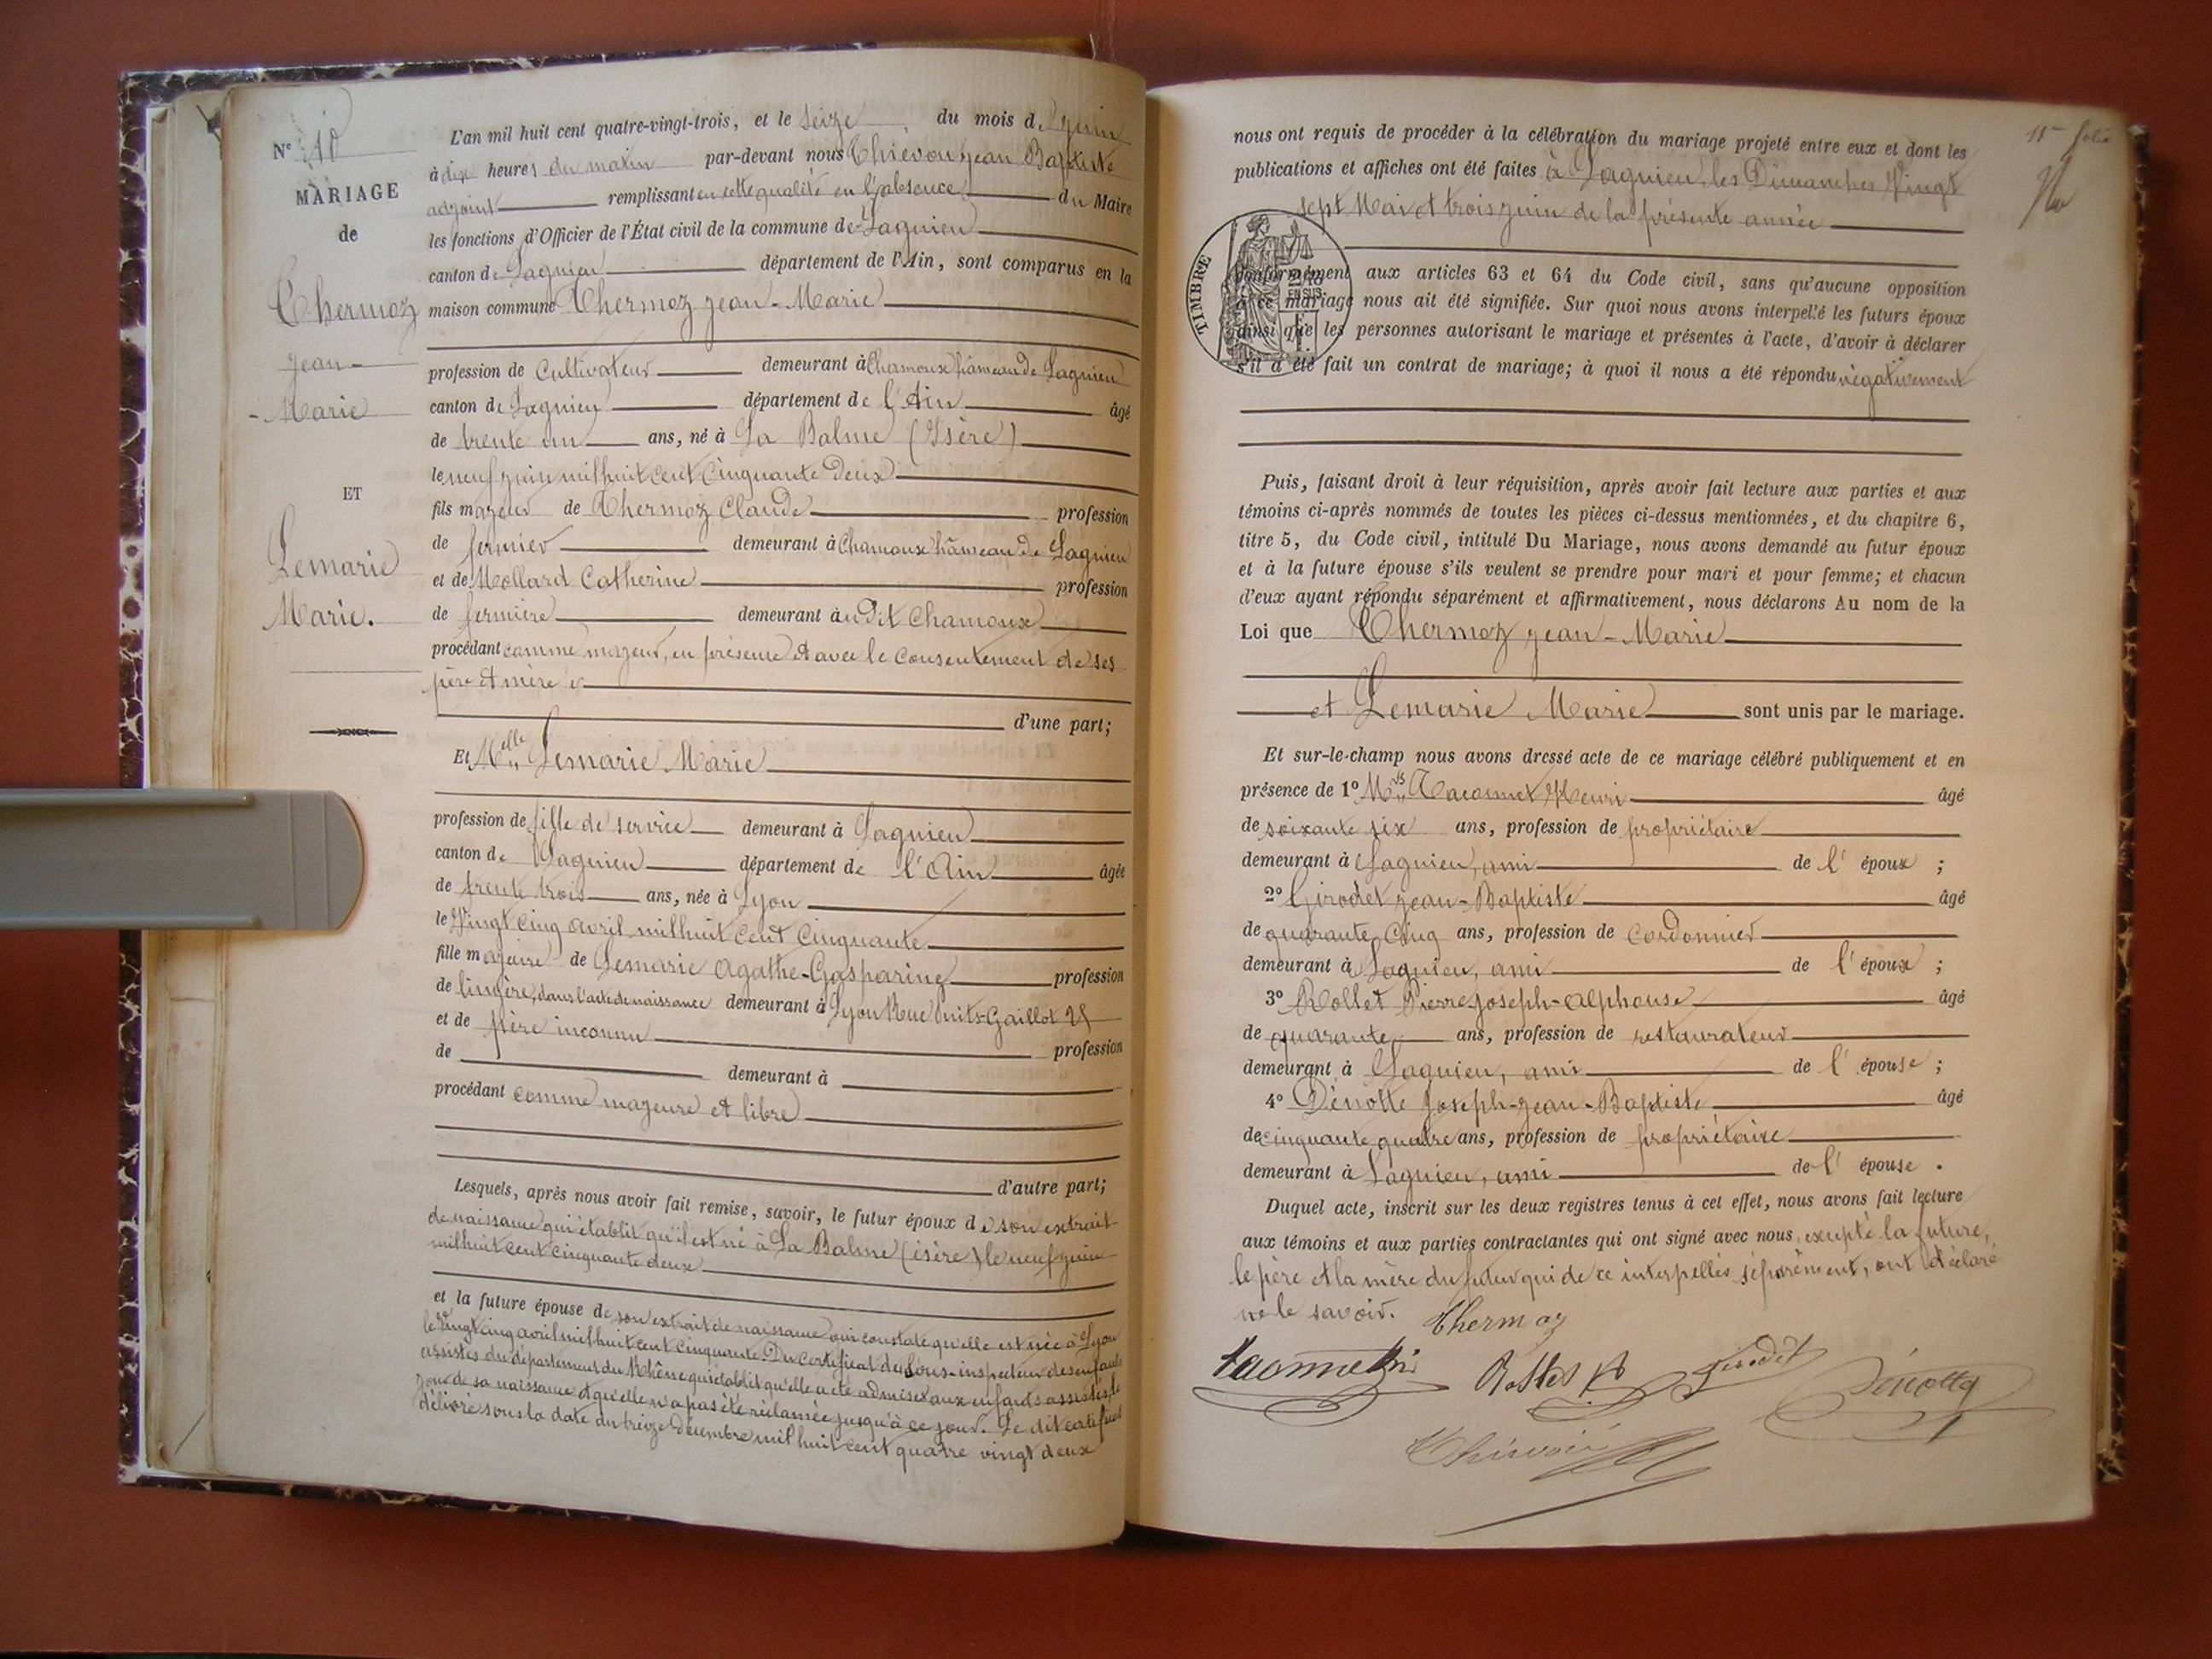 N° 10
MARIAGE
de
Thermoz
Jean-
Marie
ET
Lemarie
Marie.
L'an mil huit cent quatre-vingt-trois, et le seize du mois de juin
à dix heures du matin par-devant nous Thiévon Jean Baptiste
adjoint remplissant en cette qualité en l'absence du Maire
les fonctions d'Officier de l'État civil de la commune de Lagnieu
canton de Lagnieu département de l'Ain, sont comparus en la
maison commune Thermoz Jean-Marie
profession de Cultivateur demeurant à Chamoux hâmeau de Lagnieu
canton de Lagnieu département de l'Ain âgé
de trente un ans, né à La Balme (Isère)
le neuf juin mil huit cent cinquante deux
fils majeur de Thermoz Claude profession
de fermier demeurant à Chamoux hâmeau de Lagnieu
et de Mollard Catherine profession
de fermière demeurant à u dit Chamoux
procédant comme majeur, en présence et avec le consentement de ses
père et mère
d'une part;
Et Melle Lemarie Marie
profession de fille de service demeurant à Lagnieu
canton de Lagnieu département de l'Ain âgée
de trente trois ans, née à Lyon
le Vingt cinq avril mil huit cent cinquante
fille majeure de Lemarie Agathe-Gasparine profession
de lingère, dans l'acte de naissance demeurant à Lyon Rue Puits-Gaillot 25
et de père inconnu profession
de demeurant à
procédant comme majeure et libre
d'autre part;
Lesquels, après nous avoir fait remise, savoir, le futur époux de son extrait
de naissance qui établit qu'il est né à La Balme (isère) le neuf juin
mil huit cent cinquante deux
et la future épouse de son extrait de naissance qui constate qu'elle est née à Lyon
le vingt cinq avril mil huit cent cinquante. Du certificat du sous-inspecteur des enfants
assistés du département du Rhône qui établit qu'elle a été admise aux enfants assistés, le
jour de sa naissance et qu'elle n'a pas été réclamée jusqu'à ce jour. Le dit certificat
délivré sous la date du treize décembre mil huit cent quatre vingt deux
11me folio
nous ont requis de procéder à la célébration du mariage projeté entre eux et dont les
publications et affiches ont été faites à Lagnieu, les Dimanches Vingt
sept Mai et trois juin de la présente année
TIMBRE
conformément aux articles 63 et 64 du Code civil, sans qu'aucune opposition
à ce mariage nous ait été signifiée. Sur quoi nous avons interpellé les futurs époux
ainsi que les personnes autorisant le mariage et présentes à l'acte, d'avoir à déclarer
s'il a été fait un contrat de mariage; à quoi il nous a été répondu négativement
Puis, faisant droit à leur réquisition, après avoir fait lecture aux parties et aux
témoins ci-après nommés de toutes les pièces ci-dessus mentionnées, et du chapitre 6,
titre 5, du Code civil, intitulé Du Mariage, nous avons demandé au futur époux
et à la future épouse s'ils veulent se prendre pour mari et pour femme; et chacun
d'eux ayant répondu séparément et affirmativement, nous déclarons Au nom de la
Loi que Thermoz Jean-Marie
et Lemarie Marie sont unis par le mariage.
Et sur-le-champ nous avons dressé acte de ce mariage célébré publiquement et en
présence de 1° Mrs Tacommet Henri âgé
de soixante six ans, profession de propriétaire
demeurant à Lagnieu, ami de l' époux ;
2° Girodet Jean-Baptiste âgé
de quarante cinq ans, profession de cordonnier
demeurant à Lagnieu, ami de l' époux ;
3° Rollet Pierre Joseph-Alphonse âgé
de quarante ans, profession de restaurateur
demeurant à Lagnieu, ami de l' épouse ;
4° Dénotte Joseph-Jean-Baptiste âgé
de cinquante quatre ans, profession de propriétaire
demeurant à Lagnieu, ami de l' épouse .
Duquel acte, inscrit sur les deux registres tenus à cet effet, nous avons fait lecture
aux témoins et aux parties contractantes qui ont signé avec nous, excepté la future,
le père et la mère du futur qui de ce interpellés séparément, ont déclaré
ne le savoir. Thermoz
Rollet Girodet Dénotte
Thiévon